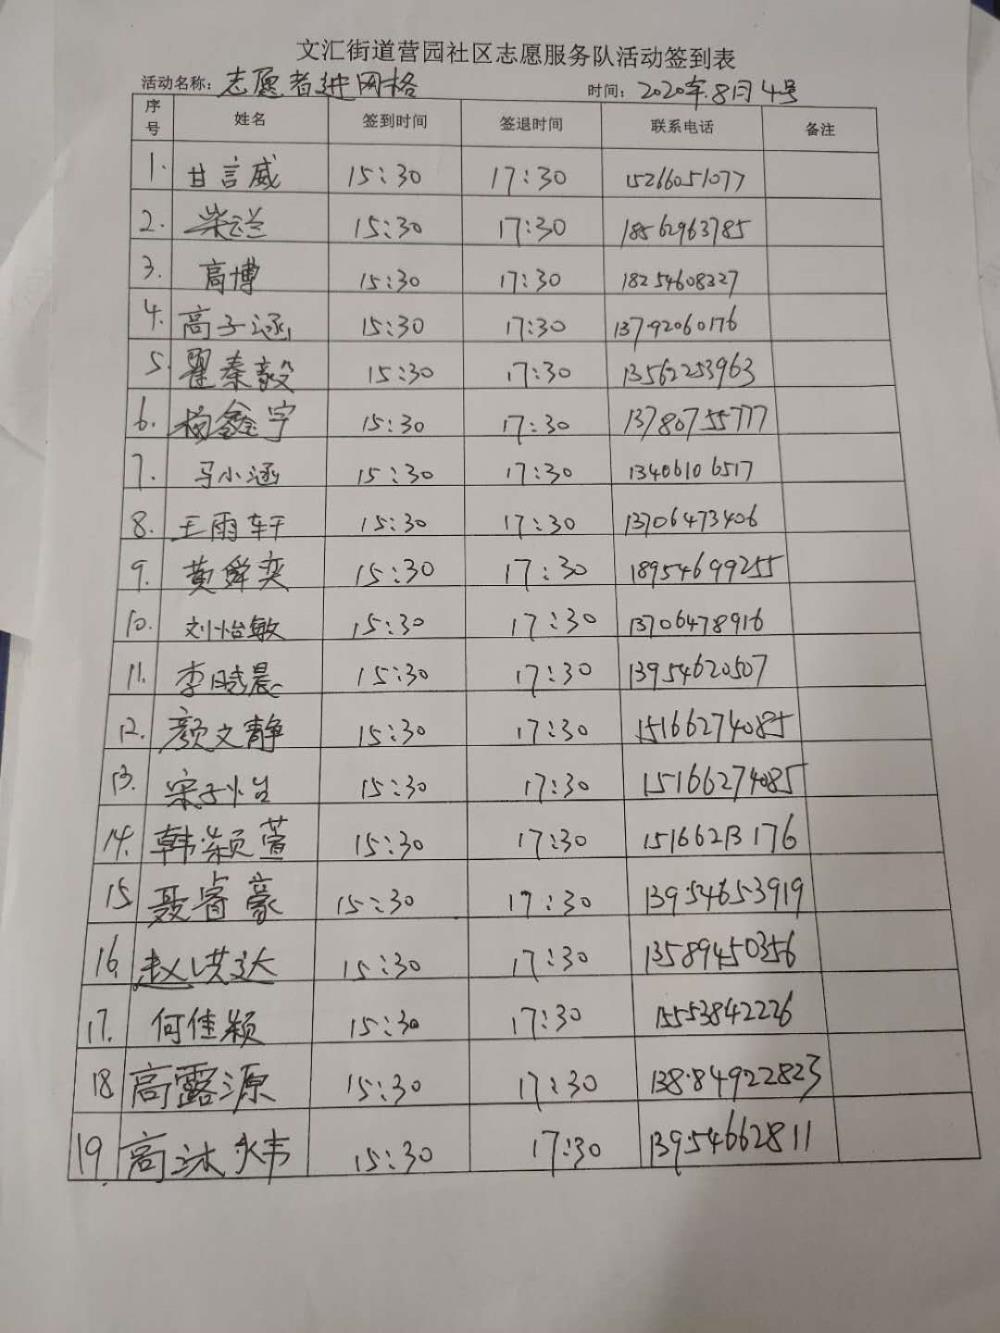 文汇街道营园社区志愿服务队活动签到表
活动名称：志愿者进网格 时间：2020年8月4号
序号 姓名 签到时间 签退时间 联系电话 备注
1. 甘言威 15:30 17:30 15266051077
2. 柴云兰 15:30 17:30 18562963785
3. 高博 15:30 17:30 18254608327
4. 高子涵 15:30 17:30 13792060176
5. 翟秦毅 15:30 17:30 13562253963
6. 杨鑫宇 15:30 17:30 13780755777
7. 马小涵 15:30 17:30 13406106517
8. 王雨轩 15:30 17:30 13706473406
9. 黄舜奕 15:30 17:30 18954699255
10. 刘怡敏 15:30 17:30 13706478916
11. 李晓晨 15:30 17:30 13954620507
12. 颜文静 15:30 17:30 15166274085
13. 宋子怡 15:30 17:30 15166274085
14. 韩颖萱 15:30 17:30 15166213176
15 聂睿豪 15:30 17:30 13954653919
16. 赵洪达 15:30 17:30 13589450356
17. 何佳颖 15:30 17:30 15553842226
18 高露源 15:30 17:30 13884922823
19. 高沐炜 15:30 17:30 13954662811